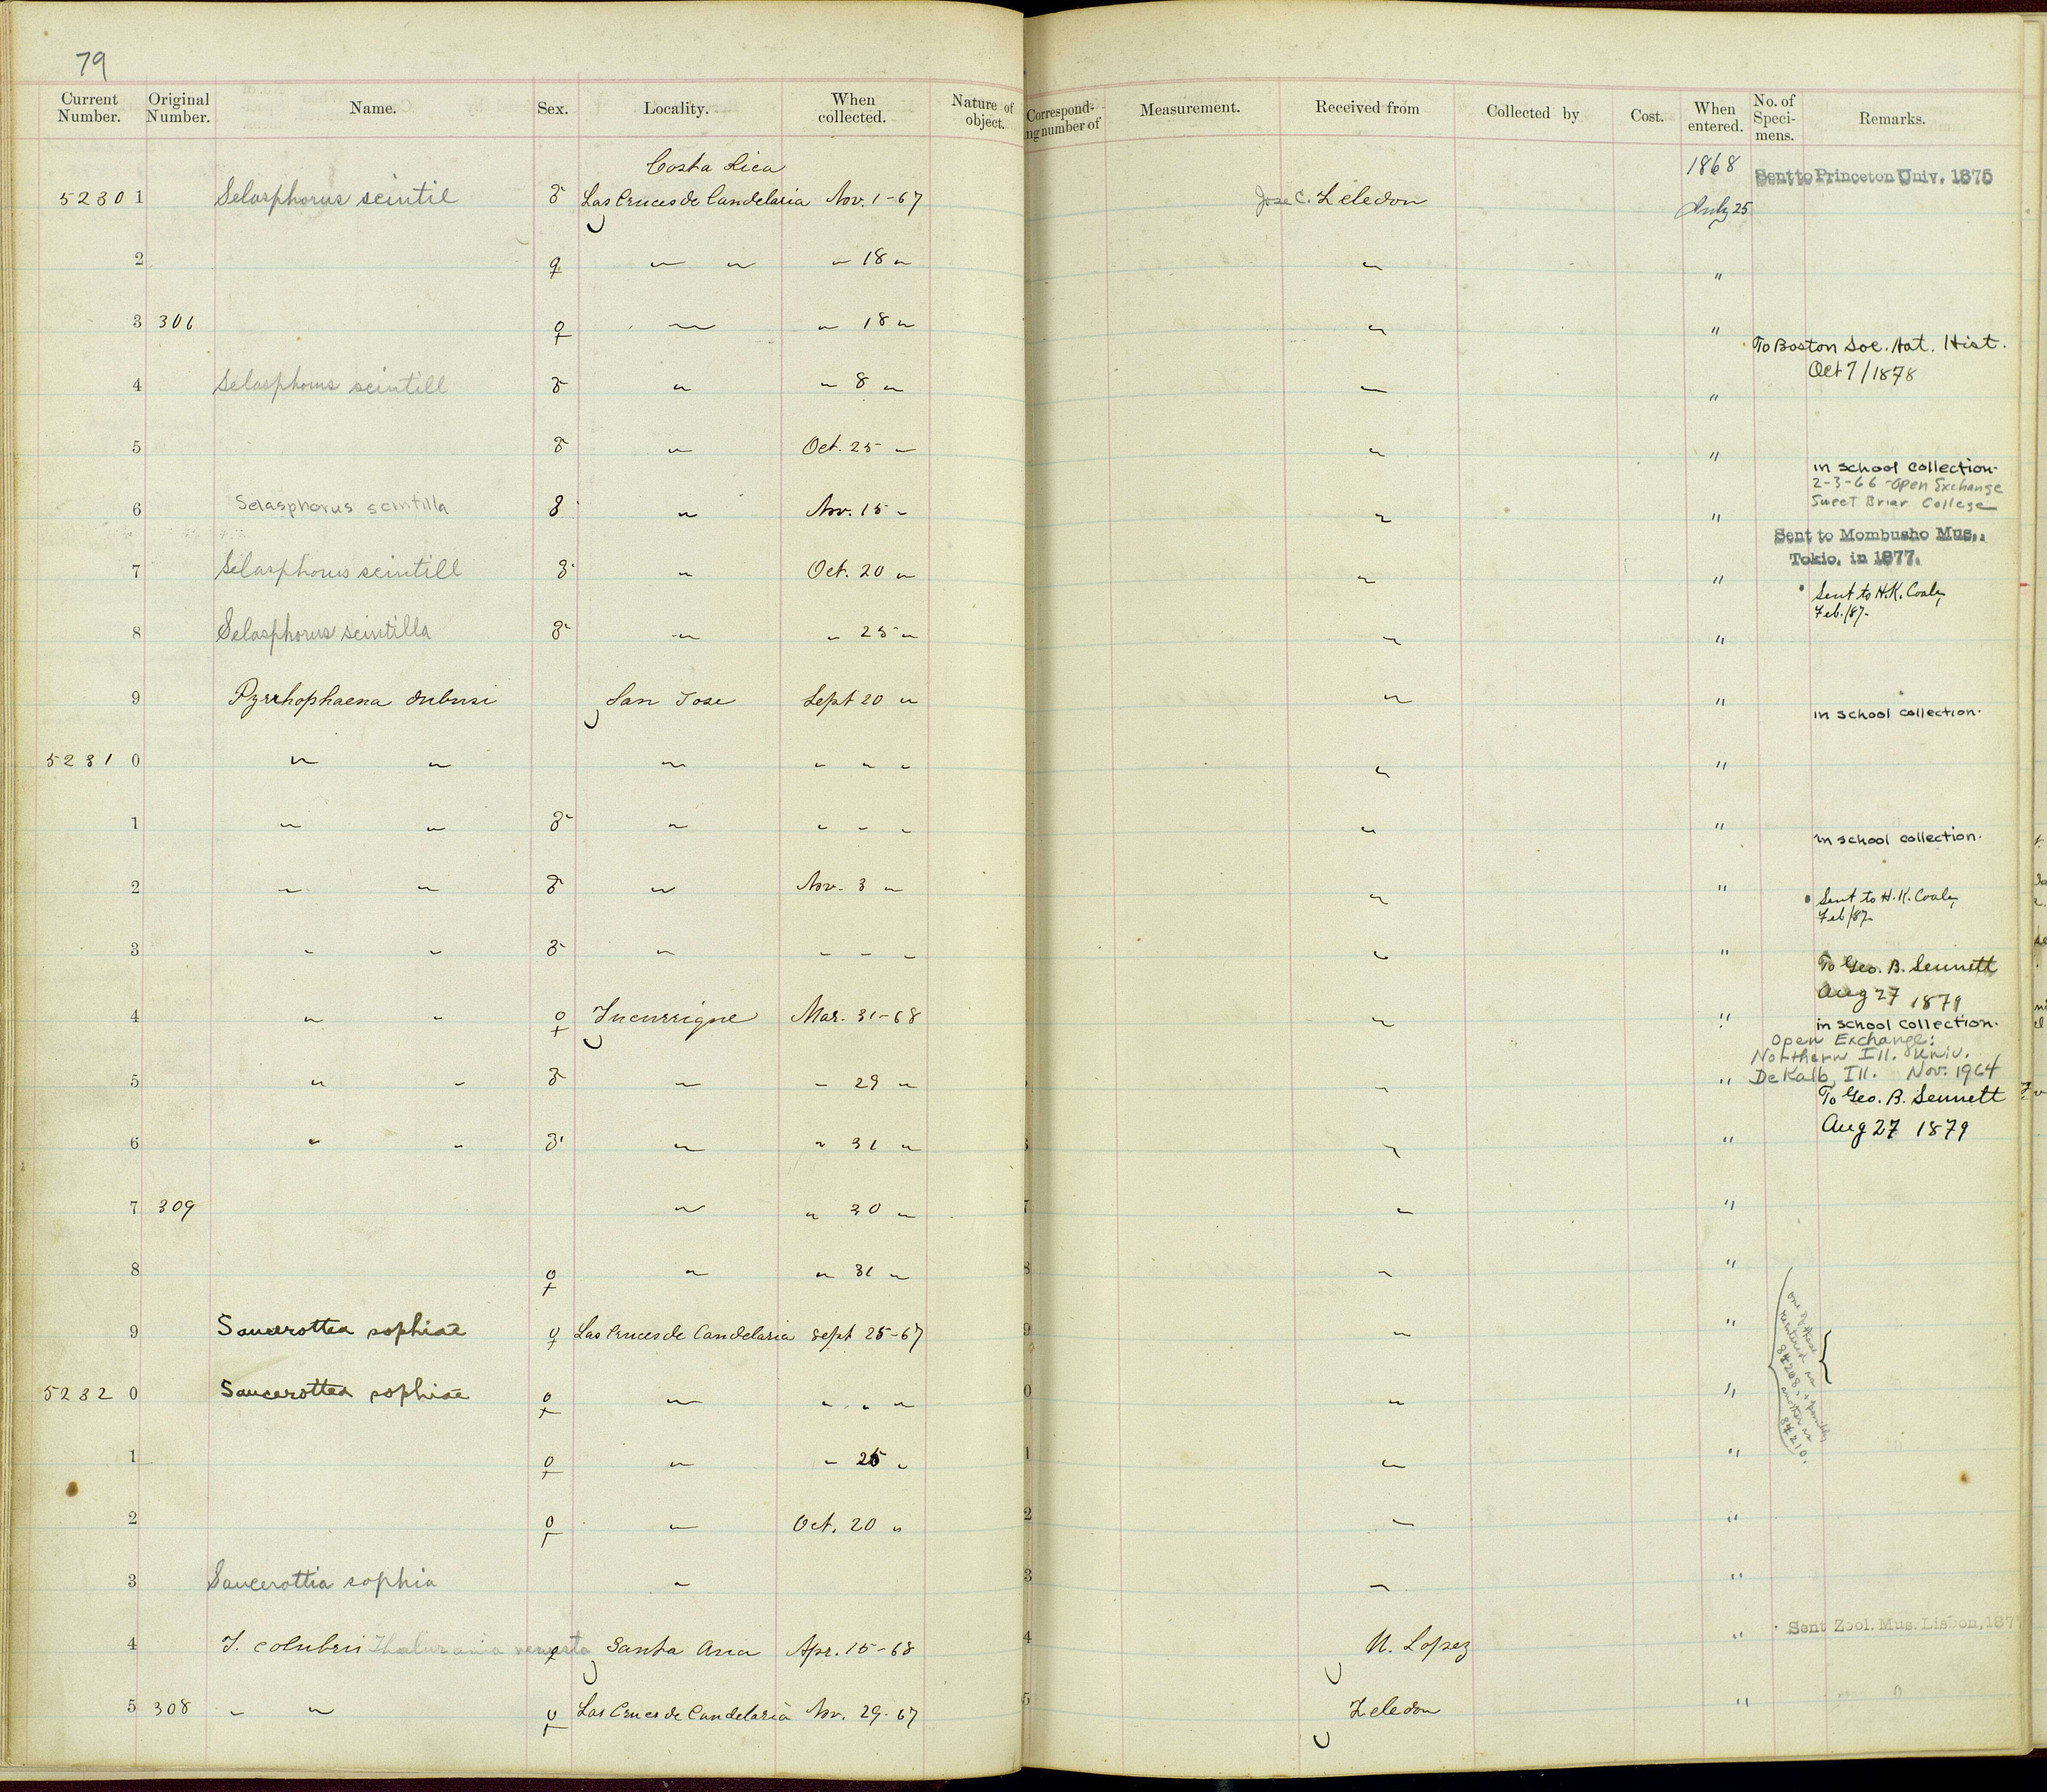 79
Current Number. Original Number. Name. Sex. Locality. When collected. Nature of object. Correspond- ing number of Measurement. Received from Collected by Cost. When entered. No. of Speci- mens. Remarks.
Costa Rica 1868 Sent to Princeton Univ. 1875
52301 Selasphorus scintil ♂ Las Cruces de Candelaria Nov. 1-67 Jose C. Zeledon July 25
2 ♀ " " " 18 " " "
3 306 ♀ " " 18 " " "
To Boston Soc. Nat. Hist.
Oct 7/1878
4 Selasphorus scintill ♂ " " 8 " " "
5 ♂ " Oct. 25 " " "
in school collection.
2-3-66 - Open Exchange
Sweet Briar College
6 Selasphorus scintilla ♂ " Nov. 15 " " "
Sent to Mombusho Mus.,
Tokio, in 1877.
7 Selasphorus scintill ♂ " Oct. 20 " " "
Sent to H.K. Coale,
Feb./87.
8 Selasphorus scintilla ♂ " " 25 " " "
9 Pyrrhophaena dubusi San Jose Sept 20 " " " in school collection.
52310 " " " " " " " "
1 " " ♂ " " " " " " in school collection.
2 " " ♂ " Nov. 3 " " "
Sent to H.K. Coale,
Feb/87.
3 " " ♂ " " " " " "
To Geo. B. Sennett
Aug 27 1879
4 " " ♀ Mar. 31-68 " "
in school collection.
Open Exchange:
Northern Ill. Univ.
DeKalb, Ill. Nov. 1964
5 " " ♂ " " 29 " " "
To Geo. B. Sennett
Aug 27 1879
6 " " ♂ " " 31 " " "
7 309 " " 30 " " "
8 ♀ " " 31 " " "
9 Saucerottea sophiae ♀ Las Cruces de Candelaria Sept 25-67 " "
52320 Saucerottea sophiae ♀ " " " " " "
one of these
reentered as
84208, + possibly
another as
84210.
1 ♀ " " 25 " " "
2 ♀ " Oct. 20 " " "
3 Saucerottia sophia " " "
4 T. colubris Thalurania venusta ♀ Santa Ana Apr. 15-68 N. Lopez " Sent Zool. Mus. Lisbon, 187
5 308 " " ♀ Las Cruces de Candelaria Nov. 29-67 Zeledon "